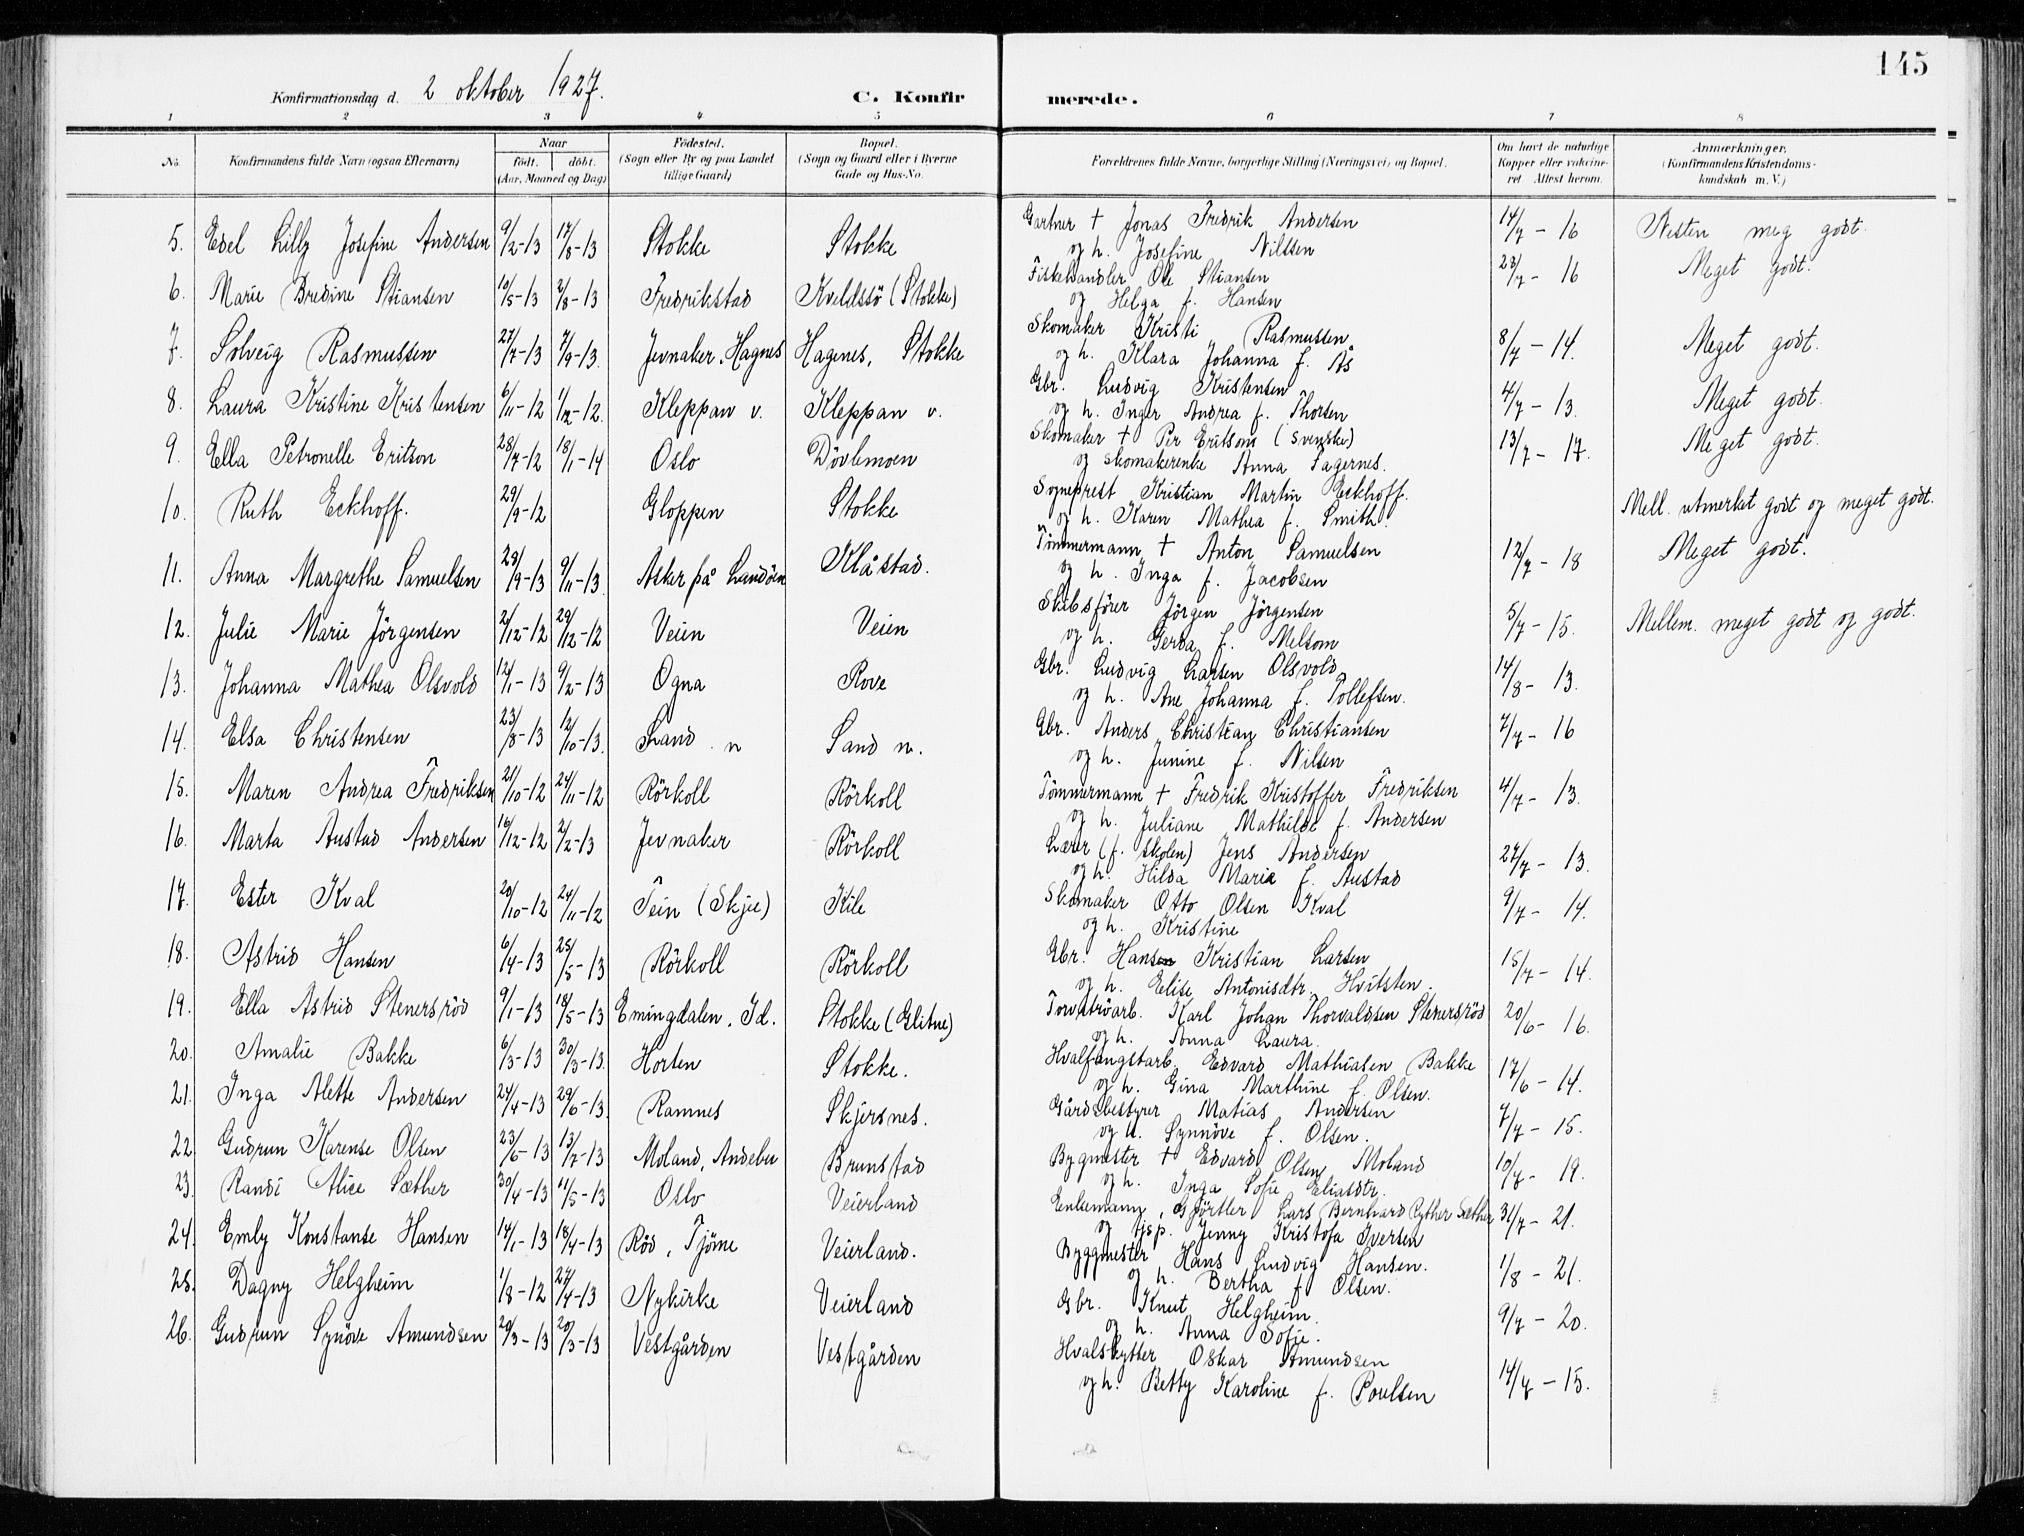 145
Konfirmationsdag d. 2 oktober 1927.
C. Konfirmerede.
1 2 3 4 5 6 7 8
No. | Konfirmandens fulde Navn (ogsaa Efternavn) | Naar født. | døbt. (Aar, Maaned og Dag) | Fødested. (Sogn eller By og paa Landet tillige Gaard) | Bopæl. (Sogn og Gaard eller i Byerne Gade og Hus-No. | Forældrenes fulde Navne, borgerlige Stilling (Næringsvei) og Bopæl. | Om havt de naturlige Kopper eller vaccineret. Attest herom. | Anmærkninger. (Konfirmandens Kristendomskundskab m. V.)
5. Edel Lilly Josefine Andersen 9/2-13 17/8-13 Stokke Stokke Gartner † Jonas Fredrik Andersen 14/7-16 Nesten meg godt.
og h. Josefine Nilssen
6. Marie Bredine Stiansen 10/5-13 3/8-13 Fredrikstad Kveldssö (Stokke) Fiskehandler Ole Stiansen 23/7-16 Meget godt.
og Helga f. Hansen
7. Solveig Rasmussen 27/7-13 7/9-13. Jevnaker, Hagnes Hagenes, Stokke Skomaker Kristi Rasmussen 8/7-14. Meget godt.
og h. Klara Johanna f. Ås
8. Laura Kristine Kristensen 6/11-12 1/12-12. Kleppan v. Kleppan v. Gbr. Ludvig Kristensen 4/7-13. Meget godt.
og h. Inger Andrea f. Thorsen
9. Ella Petronelle Eritson 28/7-12 18/1-14 Oslo Dövlemoen Skomaker † Per Eritson (svenske) 13/7-17. Meget godt.
og skomakerenke Anna Fagernes.
10. Ruth Eckhoff. 29/9-12 Gloppen Stokke Sogneprest Kristian Martin Eckhoff. Mell. utmerket godt og meget godt.
og h. Karen Mathea f. Smith.
11. Anna Margrethe Samuelsen 28/9-13 9/11-13. Asker på Landöen Klåstad. Tömmermann † Anton Samuelsen 12/7-18 Meget godt.
og h. Inga f. Jacobsen
12. Julie Marie Jörgensen 2/12-12 29/12-12 Veien Veien Skibsförer Jörgen Jörgensen 5/7-15. Mellem. meget godt og godt.
og h. Gerda f. Melsom
13. Johanna Mathea Olsvold 12/1-13 9/2-13 Ogna Rove Gbr. Ludvig Larsen Olsvold 14/8-13.
og h. Ane Johanna f. Tollefsen.
14. Elsa Christensen 23/8-13 12/10-13. Sand n Sand n. Gbr. Anders Christian Christiansen 7/7-16
og h. Junine f. Nilsen
15. Maren Andrea Fredriksen 21/10-12 24/11-12 Rörkoll Rörkoll Tömmermann † Fredrik Kristoffer Fredriksen 4/7-13.
og h. Juliane Mathilde f. Andersen
16. Marta Austad Andersen 16/12-12 2/2-13 Jevnaker Rörkoll Lærer (f. skolen) Jens Andersen 27/7-13.
og h. Hilda Marie f. Austad
17. Ester Kval 20/10-12 24/11-12 Tein (Skjee) Kile Skomaker Otto Olsen Kval 9/7-14.
og h. Kristine
18. Astrid Hansen 6/4-13 25/5-13 Rörkoll Rörkoll Gbr. Hans Kristian Larsen 15/7-14.
og h. Elise Antonisdtr. Hvitsten.
19. Ella Astrid Stenersröd 9/1-13 18/5-13 Emingdalen. Id. Stokke (Glitne) Torvströarb. Karl Johan Thorvaldsen Stenersröd 20/6-16.
og h. Anna Laura.
20. Amalie Bakke 6/3-13 30/3-13. Horten Stokke. Hvalfangstarb. Edvard Mathiasen Bakke 17/6-14.
og h. Gina Marthine f. Olsen.
21. Inga Alette Andersen 24/4-13 29/6-13. Ramnes Skjersnes. Gårdsbestyrer Matias Andersen 7/7-15.
og h. Synnöve f. Olsen.
22. Gudrun Karense Olsen 23/6-13 13/7-13 Moland, Andebu Brunstad Bygmester † Edvard Olsen Moland 10/7-19.
og h. Inga Sofie Eliasdtr.
23. Randi Alice Sæther 30/4-13 11/5-13 Oslo Veierland Enkemann, Gjörtler Lars Bernhard Ryther Sæther 31/7-21.
og tjsp. Jenny Kristofa Iversen
24. Emly Konstanse Hansen 14/1-13 18/4-13 Röd, Tjöme Veierland. Byggmester Hans Ludvig Hansen. 1/8-21.
og h. Bertha f Olsen.
25. Dagny Helgheim 1/8-12 27/4-13 Nykirke Veierland Gbr. Knut Helgheim. 9/7-20.
og h. Anna Sofie.
26. Gudrun Synöve Amundsen 20/3-13 20/3-13 Vestgården Vestgården Hvalskytter Oskar Amundsen 14/7-15.
og h. Betty Karoline f. Poulsen